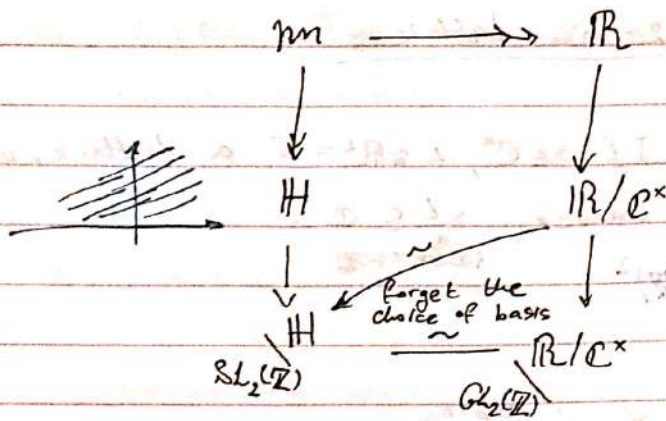 𝔪 ⟶ ℝ
ℍ ℝ/ℂ^×
~
forget the
choice of basis
ℍ ~ ℝ/ℂ^×
SL_2(ℤ) GL_2(ℤ)